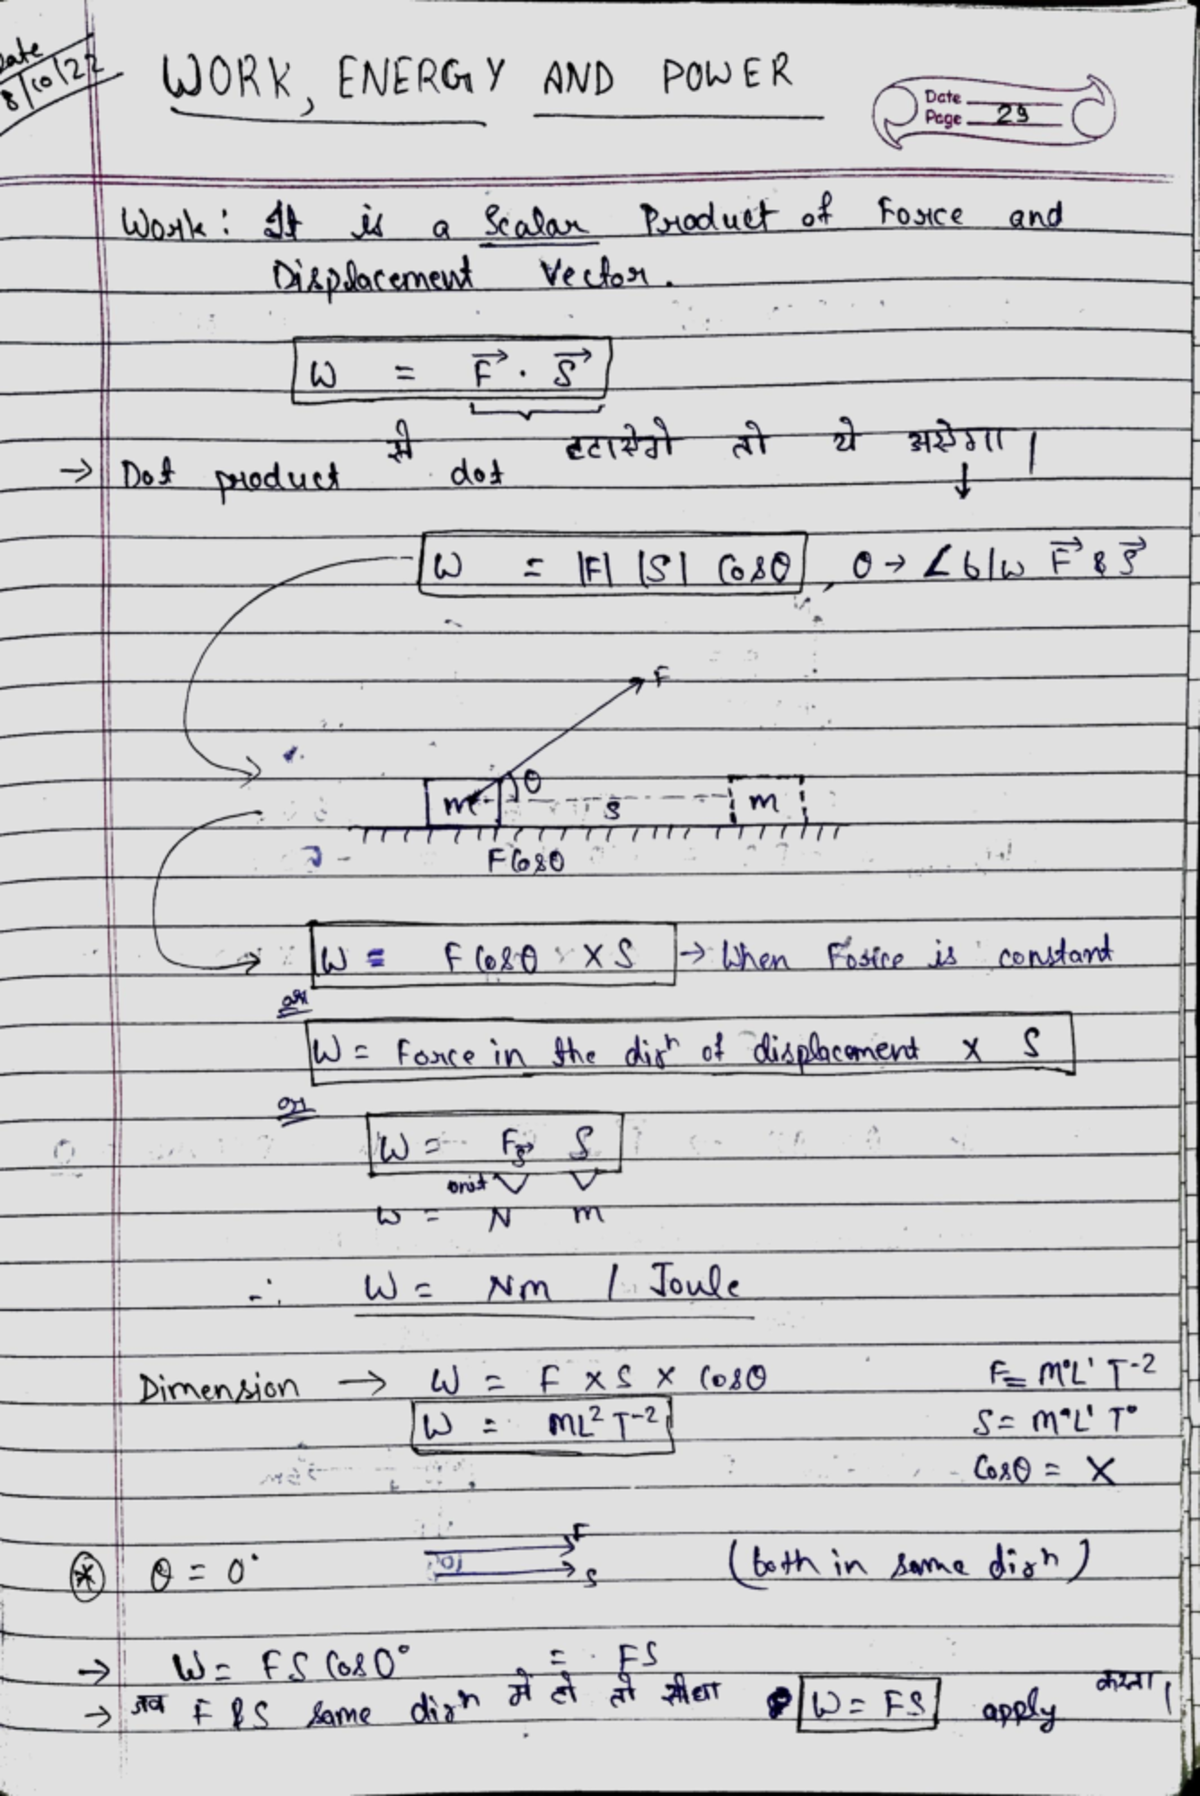 Date
8/10/22
WORK, ENERGY AND POWER
Date
Page 29
Work: It is a Scalar Product of Force and
Displacement Vector.
W = F⃗ · S⃗
→ Dot product से dot हटाऐगे तो ये आऐगा।
W = |F| |S| Cosθ , θ → ∠ b/w F⃗ & S⃗
F
θ
m S m
F Cosθ
W = F Cosθ × S → When Force is constant
or
W = Force in the dirⁿ of displacement × S
or
W = F_S⃗ S
unit
W = N m
∴ W = Nm / Joule
Dimension → W = F × S × Cosθ F = M¹L¹T⁻²
W = ML²T⁻² S = M⁰L¹T⁰
Cosθ = X
⊛ θ = 0° F S (both in same dirⁿ)
→ W = FS Cos0° = FS
→ जब F & S same dirⁿ में हो तो सीधा W = FS apply करना।